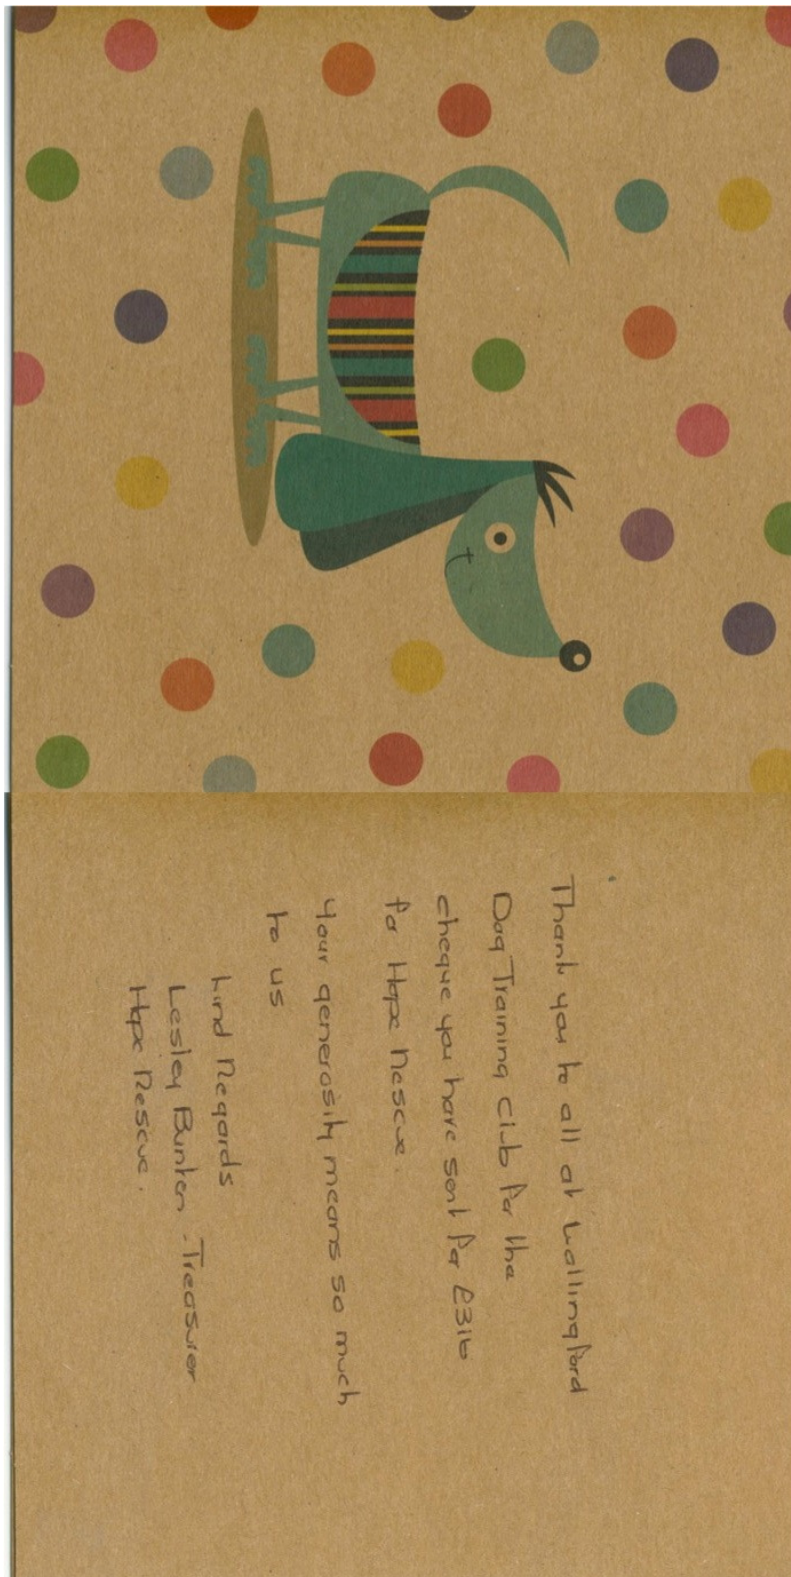 Thank you to all at Wallingford
Dog Training Club for the
cheque you have sent for £316
for Hope Rescue.
Your generosity means so much
to us
Kind Regards
Lesley Bunten - Treasurer
Hope Rescue.